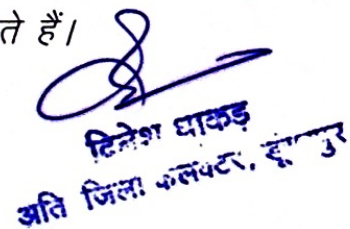 ते हैं।
दिनेश धाकड़
अति जिला कलक्टर, डूंगरपुर